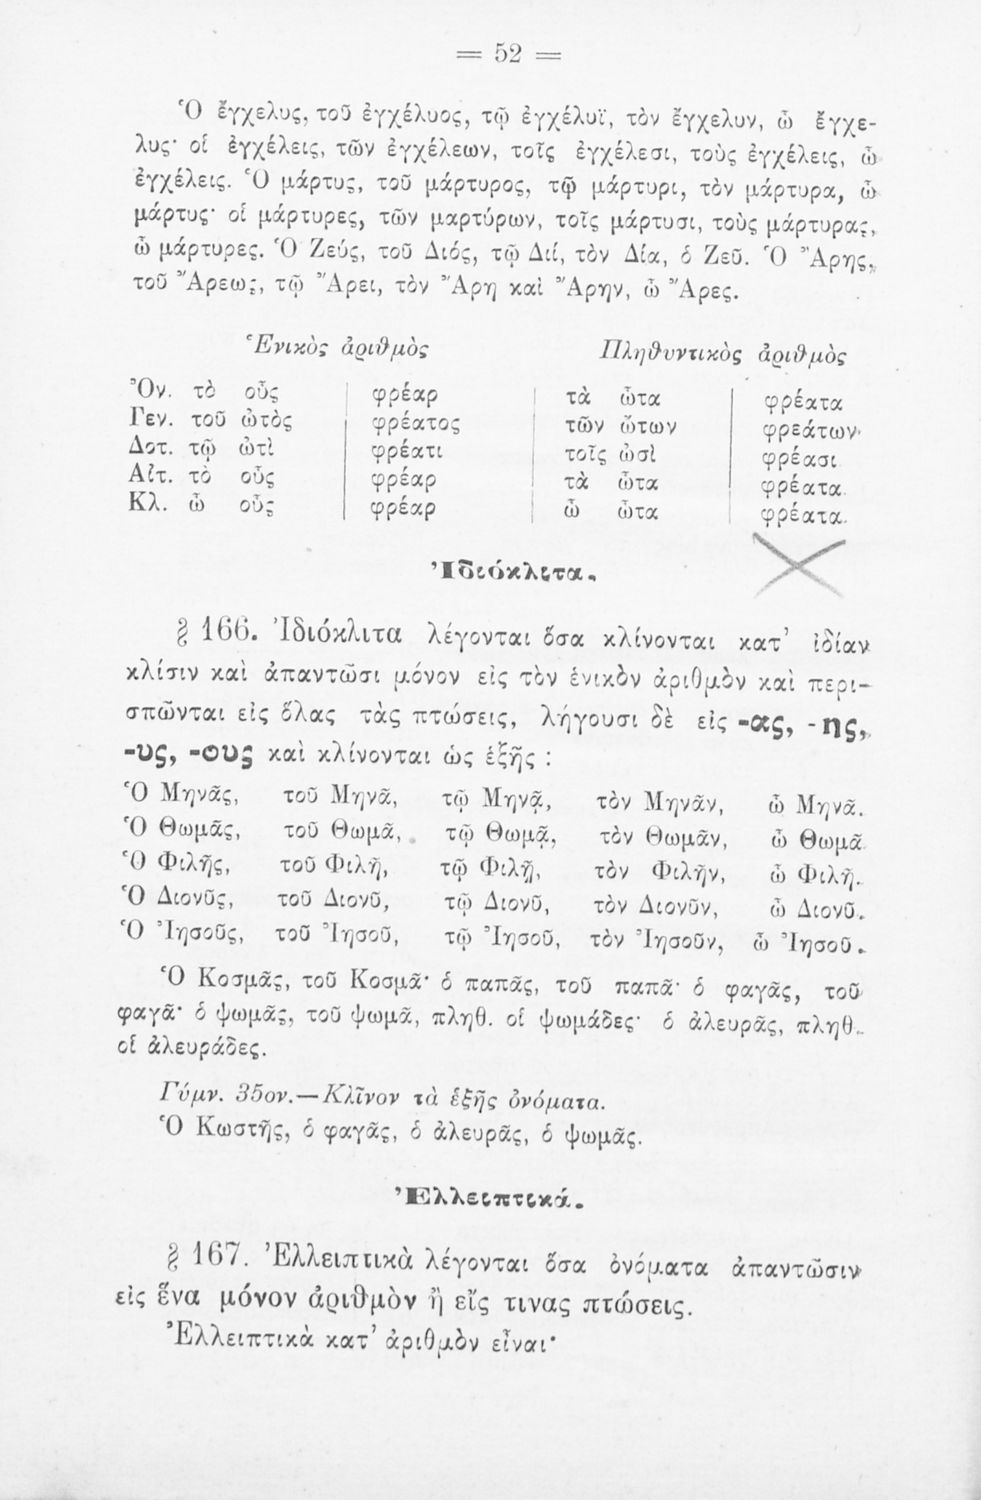 = 52 =
Ὁ ἔγχελυς, τοῦ ἐγχέλυος, τῷ ἐγχέλυϊ, τὸν ἔγχελυν, ὦ ἔγχε-
λυς· οἱ ἐγχέλεις, τῶν ἐγχέλεων, τοῖς ἐγχέλεσι, τοὺς ἐγχέλεις, ὦ
ἐγχέλεις. Ὁ μάρτυς, τοῦ μάρτυρος, τῷ μάρτυρι, τὸν μάρτυρα, ὦ
μάρτυς· οἱ μάρτυρες, τῶν μαρτύρων, τοῖς μάρτυσι, τοὺς μάρτυρας,
ὦ μάρτυρες. Ὁ Ζεύς, τοῦ Διός, τῷ Διί, τὸν Δία, ὁ Ζεῦ. Ὁ Ἄρης,
τοῦ Ἄρεως, τῷ Ἄρει, τὸν Ἄρη καὶ Ἄρην, ὦ Ἄρες.
Ἑνικὸς ἀριθμὸς Πληθυντικὸς ἀριθμὸς
Ὀν. τὸ οὖς φρέαρ τὰ ὦτα φρέατα
Γεν. τοῦ ὠτὸς φρέατος τῶν ὤτων φρεάτων
Δοτ. τῷ ὠτὶ φρέατι τοῖς ὠσὶ φρέασι
Αἰτ. τὸ οὖς φρέαρ τὰ ὦτα φρέατα
Κλ. ὦ οὖς φρέαρ ὦ ὦτα φρέατα.
Ἰδιόκλιτα.
§ 166. Ἰδιόκλιτα λέγονται ὅσα κλίνονται κατ’ ἰδίαν
κλίσιν καὶ ἀπαντῶσι μόνον εἰς τὸν ἑνικὸν ἀριθμὸν καὶ περι-
σπῶνται εἰς ὅλας τὰς πτώσεις, λήγουσι δὲ εἰς -ας, -ης,
-υς, -ους καὶ κλίνονται ὡς ἑξῆς :
Ὁ Μηνᾶς, τοῦ Μηνᾶ, τῷ Μηνᾷ, τὸν Μηνᾶν, ὦ Μηνᾶ.
Ὁ Θωμᾶς, τοῦ Θωμᾶ, τῷ Θωμᾷ, τὸν Θωμᾶν, ὦ Θωμᾶ
Ὁ Φιλῆς, τοῦ Φιλῆ, τῷ Φιλῇ, τὸν Φιλῆν, ὦ Φιλῆ.
Ὁ Διονῦς, τοῦ Διονῦ, τῷ Διονῦ, τὸν Διονῦν, ὦ Διονῦ.
Ὁ Ἰησοῦς, τοῦ Ἰησοῦ, τῷ Ἰησοῦ, τὸν Ἰησοῦν, ὦ Ἰησοῦ.
Ὁ Κοσμᾶς, τοῦ Κοσμᾶ· ὁ παπᾶς, τοῦ παπᾶ· ὁ φαγᾶς, τοῦ
φαγᾶ· ὁ ψωμᾶς, τοῦ ψωμᾶ, πληθ. οἱ ψωμάδες· ὁ ἀλευρᾶς, πληθ.
οἱ ἀλευράδες.
Γύμν. 35ον.—Κλῖνον τὰ ἑξῆς ὀνόματα.
Ὁ Κωστῆς, ὁ φαγᾶς, ὁ ἀλευρᾶς, ὁ ψωμᾶς.
Ἐλλειπτικά.
§ 167. Ἐλλειπτικὰ λέγονται ὅσα ὀνόματα ἀπαντῶσιν
εἰς ἕνα μόνον ἀριθμὸν ἢ εἴς τινας πτώσεις.
Ἐλλειπτικὰ κατ’ ἀριθμὸν εἶναι·